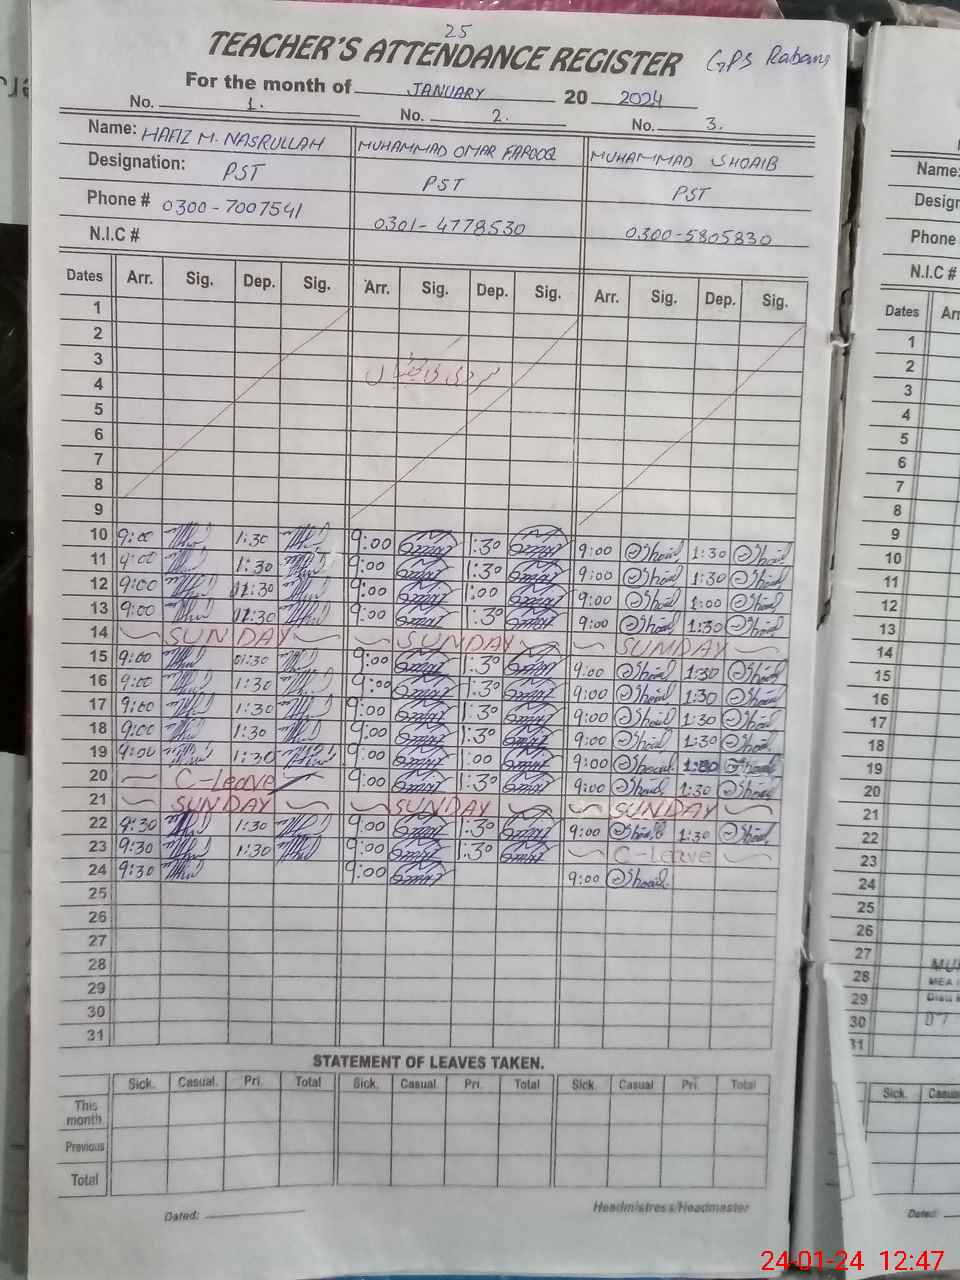 25
TEACHER'S ATTENDANCE REGISTER GPS Rabani
For the month of JANUARY 20 2024
No. 1. No. 2. No. 3.
Name: HAFIZ M. NASRULLAH MUHAMMAD OMAR FAROOQ MUHAMMAD SHOAIB
Designation: PST PST PST
Phone # 0300-7007541 0301-4778530 0300-5805830
N.I.C #
Dates Arr. Sig. Dep. Sig. Arr. Sig. Dep. Sig. Arr. Sig. Dep. Sig.
1
2
3
4
5
6
7
8
9
10 9:00 1:30 9:00 Omar 1:30 Omar 9:00 Shoaib 1:30 Shoaib
11 9:00 1:30 9:00 Omar 1:30 Omar 9:00 Shoaib 1:30 Shoaib
12 9:00 9:00 Omar 1:00 Omar 9:00 Shoaib 1:00 Shoaib
13 9:00 9:00 Omar 1:30 Omar 9:00 Shoaib 1:30 Shoaib
14 SUNDAY SUNDAY SUNDAY
15 9:00 01:30 9:00 Omar 1:30 Omar 9:00 Shoaib 1:30 Shoaib
16 9:00 1:30 9:00 Omar 1:30 Omar 9:00 Shoaib 1:30 Shoaib
17 9:00 1:30 9:00 Omar 1:30 Omar 9:00 Shoaib 1:30 Shoaib
18 9:00 1:30 9:00 Omar 1:30 Omar 9:00 Shoaib 1:30 Shoaib
19 9:00 1:30 9:00 Omar 1:00 Omar 9:00 Shoaib Shoaib
20 C-Leave 9:00 Omar 1:30 Omar 9:00 Shoaib 1:30 Shoaib
21 SUNDAY SUNDAY SUNDAY
22 9:30 1:30 9:00 Omar 1:30 Omar 9:00 Shoaib 1:30 Shoaib
23 9:30 1:30 9:00 Omar 1:30 Omar C-Leave
24 9:30 9:00 Omar 9:00 Shoaib
25
26
27
28
29
30
31
STATEMENT OF LEAVES TAKEN.
Sick. Casual. Pri. Total Sick. Casual. Pri. Total Sick. Casual Pri. Total
This month
Previous
Total
Dated: Headmistress/Headmaster
Name:
Phone #
N.I.C #
Dates
1
2
3
4
5
6
7
8
9
10
11
12
13
14
15
16
17
18
19
20
21
22
23
24
25
26
27
28
29
30
31
MEA
Sick.
Dated:
24-01-24 12:47